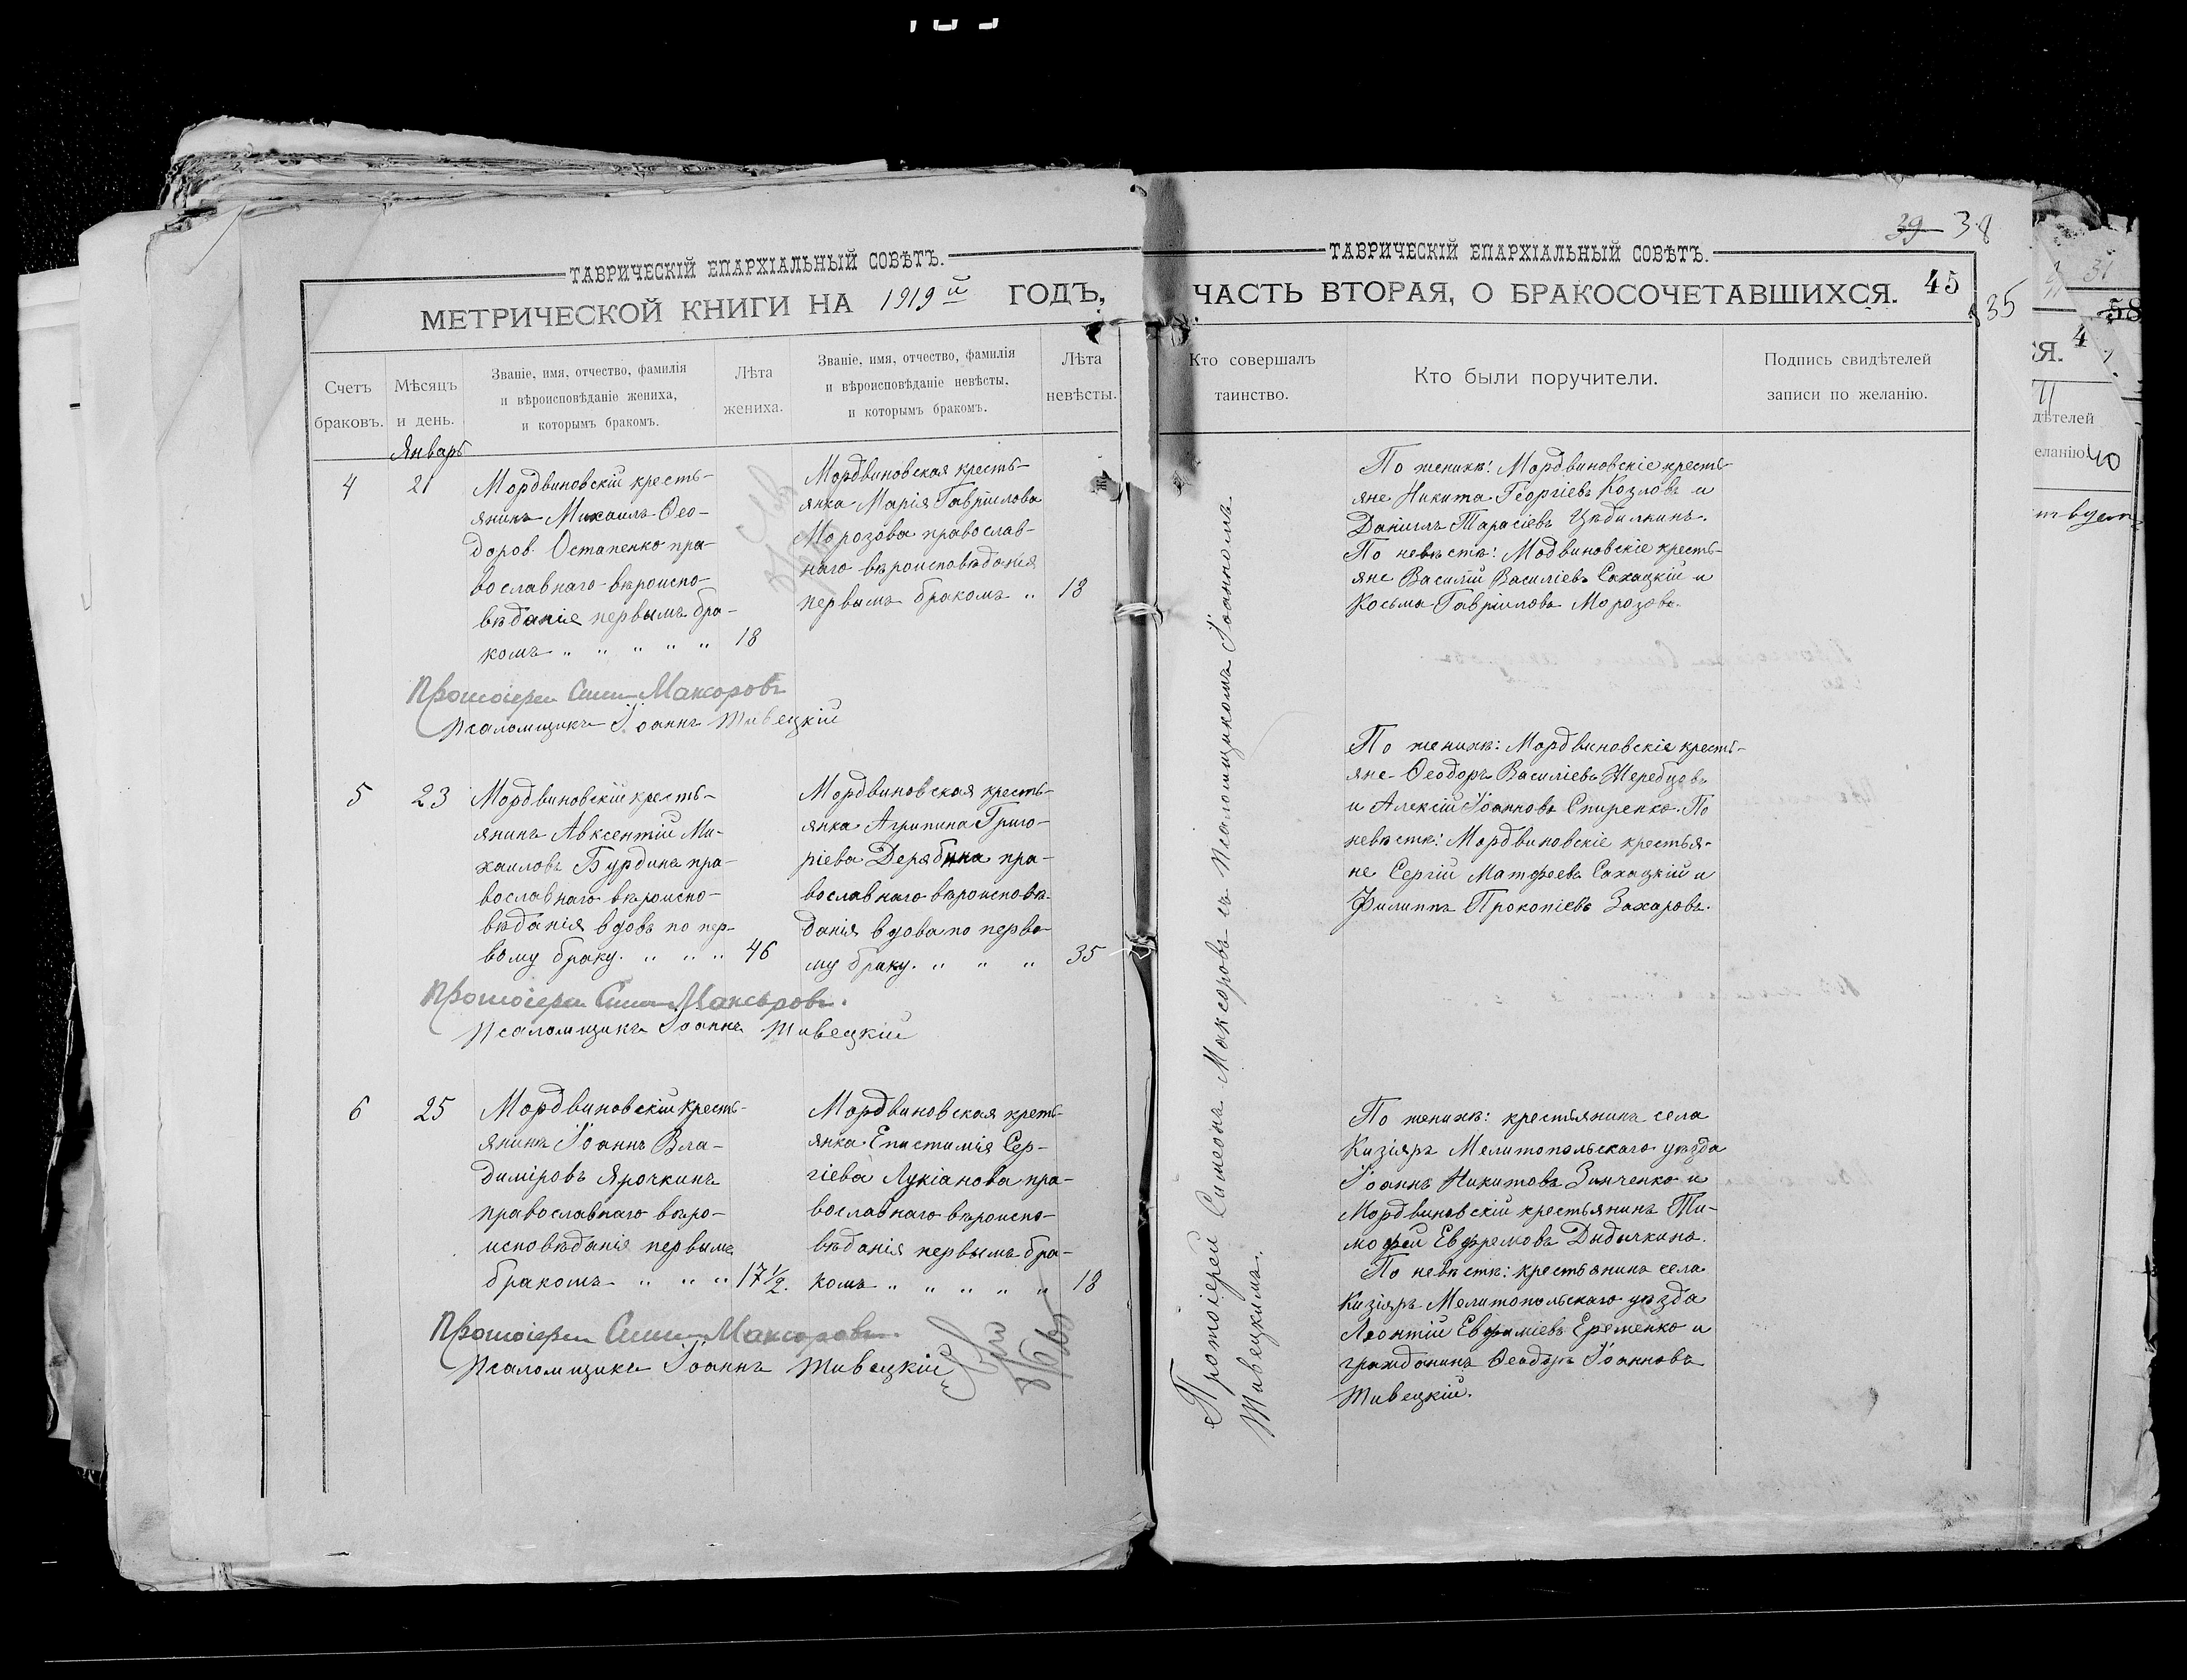 39 38
ТАВРИЧЕСКІЙ ЕПАРХІАЛЬНЫЙ СОВѢТЪ.
МЕТРИЧЕСКОЙ КНИГИ НА 1919й ГОДЪ,
Счетъ
браковъ.
Мѣсяцъ
и день.
Званіе, имя, отчество, фамилія
и вѣроисповѣданіе жениха,
и которымъ бракомъ.
Лѣта
жениха.
Званіе, имя, отчество, фамилія
и вѣроисповѣданіе невѣсты,
и которымъ бракомъ.
Лѣта
невѣсты.
Январь
4
21
Мордвиновскій кресть-
янинъ Михаилъ Ѳео-
доров. Остапенко пра-
вославнаго вѣроиспо-
вѣданіе первымъ бра-
комъ " " " " " 18
Мордвиновская кресть-
янка Марія Гавріилова
Морозова православ-
наго вѣроисповѣданія
первымъ бракомъ " 18
Протоіерей Симеонъ Максоровъ
Псаломщикъ Іоаннъ Тивецкій
5
23
Мордвиновскій кресть-
янинъ Авксентій Ми-
хаиловъ Бурдинъ пра-
вославнаго вѣроиспо-
вѣданія вдовъ по пер-
вому браку. " " " 46
Мордвиновская кресть-
янка Агрипина Григо-
ріева Дерябина пра-
вославнаго вѣроисповѣ-
данія вдова по перво-
му браку. " " " 35
Протоіерей Симеонъ Максоровъ.
Псаломщикъ Іоаннъ Тивецкій
6
25
Мордвиновскій кресть-
янинъ Іоаннъ Вла-
диміровъ Ярочкинъ
православнаго вѣро-
исповѣданія первымъ
бракомъ " " " 17 1/2.
Мордвиновская кресть-
янка Епистимія Сер-
гіева Лукіанова пра-
вославнаго вѣроиспо-
вѣданія первымъ бра-
комъ " " " " " 18
Протоіерей Симеонъ Максоровъ.
Псаломщикъ Іоаннъ Тивецкій
ТАВРИЧЕСКІЙ ЕПАРХІАЛЬНЫЙ СОВѢТЪ.
ЧАСТЬ ВТОРАЯ, О БРАКОСОЧЕТАВШИХСЯ. 45
35
Кто совершалъ
таинство.
Кто были поручители.
Подпись свидѣтелей
записи по желанію.
Протоіерей Симеонъ Максоровъ съ Псаломщикомъ Іоанномъ
Тивецкимъ.
По женихѣ: Мордвиновскіе кресть-
яне Никита Георгіевъ Козловъ и
Даніилъ Тарасіевъ Цѣдилкинъ.
По невѣстѣ: Модвиновскіе кресть-
яне Василій Василіевъ Сахацкій и
Косьма Гавріиловъ Морозовъ.
По женихѣ: Мордвиновскіе кресть-
яне Ѳеодоръ Василіевъ Жеребцовъ
и Алексій Іоанновъ Спиренко. По
невѣстѣ: Мордвиновскіе крестья-
не Сергій Матфеевъ Сахацкій и
Филиппъ Прокопіевъ Захаровъ.
По женихѣ: крестьянинъ села
Кизіяръ Мелитопольскаго уѣзда
Іоаннъ Никитовъ Зинченко и
Мордвиновскій крестьянинъ Ти-
мофей Ефремовъ Дыдычкинъ.
По невѣстѣ: крестьянинъ села
Кизіяръ Мелитопольскаго уѣзда
Леонтій Евфиміевъ Еременко и
гражданинъ Ѳеодоръ Іоанновъ
Тивецкій.
31
58
СЯ. 4
дѣтелей
еланію
40